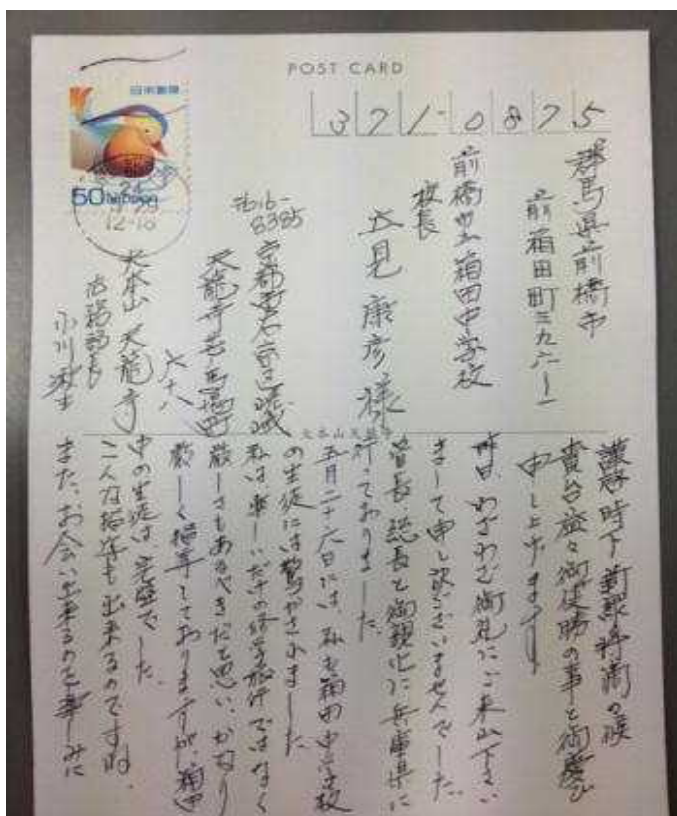 POST CARD
日本郵便
50
NIPPON
12-18
371-0875
群馬県前橋市
前箱田町三九六ー一
前橋市立箱田中学校
校長
康彦様
616-
8385
京都市右京区嵯峨
天龍寺芒ノ馬場町
六十八
大本山天龍寺
法務部長
小川
大本山天龍寺
謹啓 時下新緑 の候
貴台益々御健勝の事と御慶び
申し上げます。
昨日、わざわざ御見にご来山下さい
まして申し訳ございませんでした。
管長、総長と御親化に兵庫県に
行っておりました。
五月二十六日には、私も箱田中学校
の生徒には驚かされました
私は楽しいだけの修学旅行ではなく
厳しさもあるべきだと思い、かなり
厳しく指導しておりますが、箱田
中の生徒は、完璧でした。
こんな指導も出来るのですね。
また、お会い出来るのを楽しみに